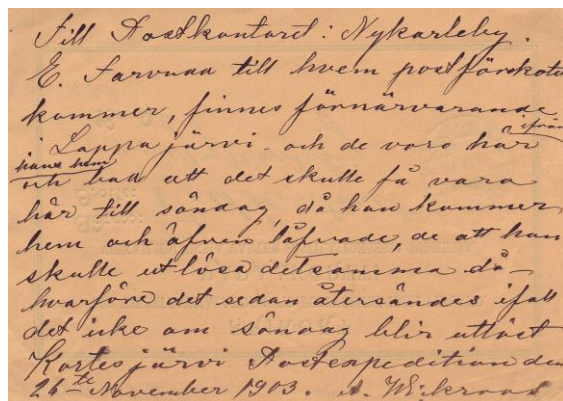 Till Postkontoret: Nykarleby.
E. till hvem postförskott
kommer, finnes förnärvarande
i Lappajärvi och de voro här ifrån
hans hem
och bad att det skulle få vara
här till söndag, då han kommer
hem och äfven låfvade, de att han
skulle utlösa detsamma då –
hvarföre det sedan återsändes ifall
det icke om söndag blir utlöst
Kortesjärvi Postexpedition den
26te November 1903. A.